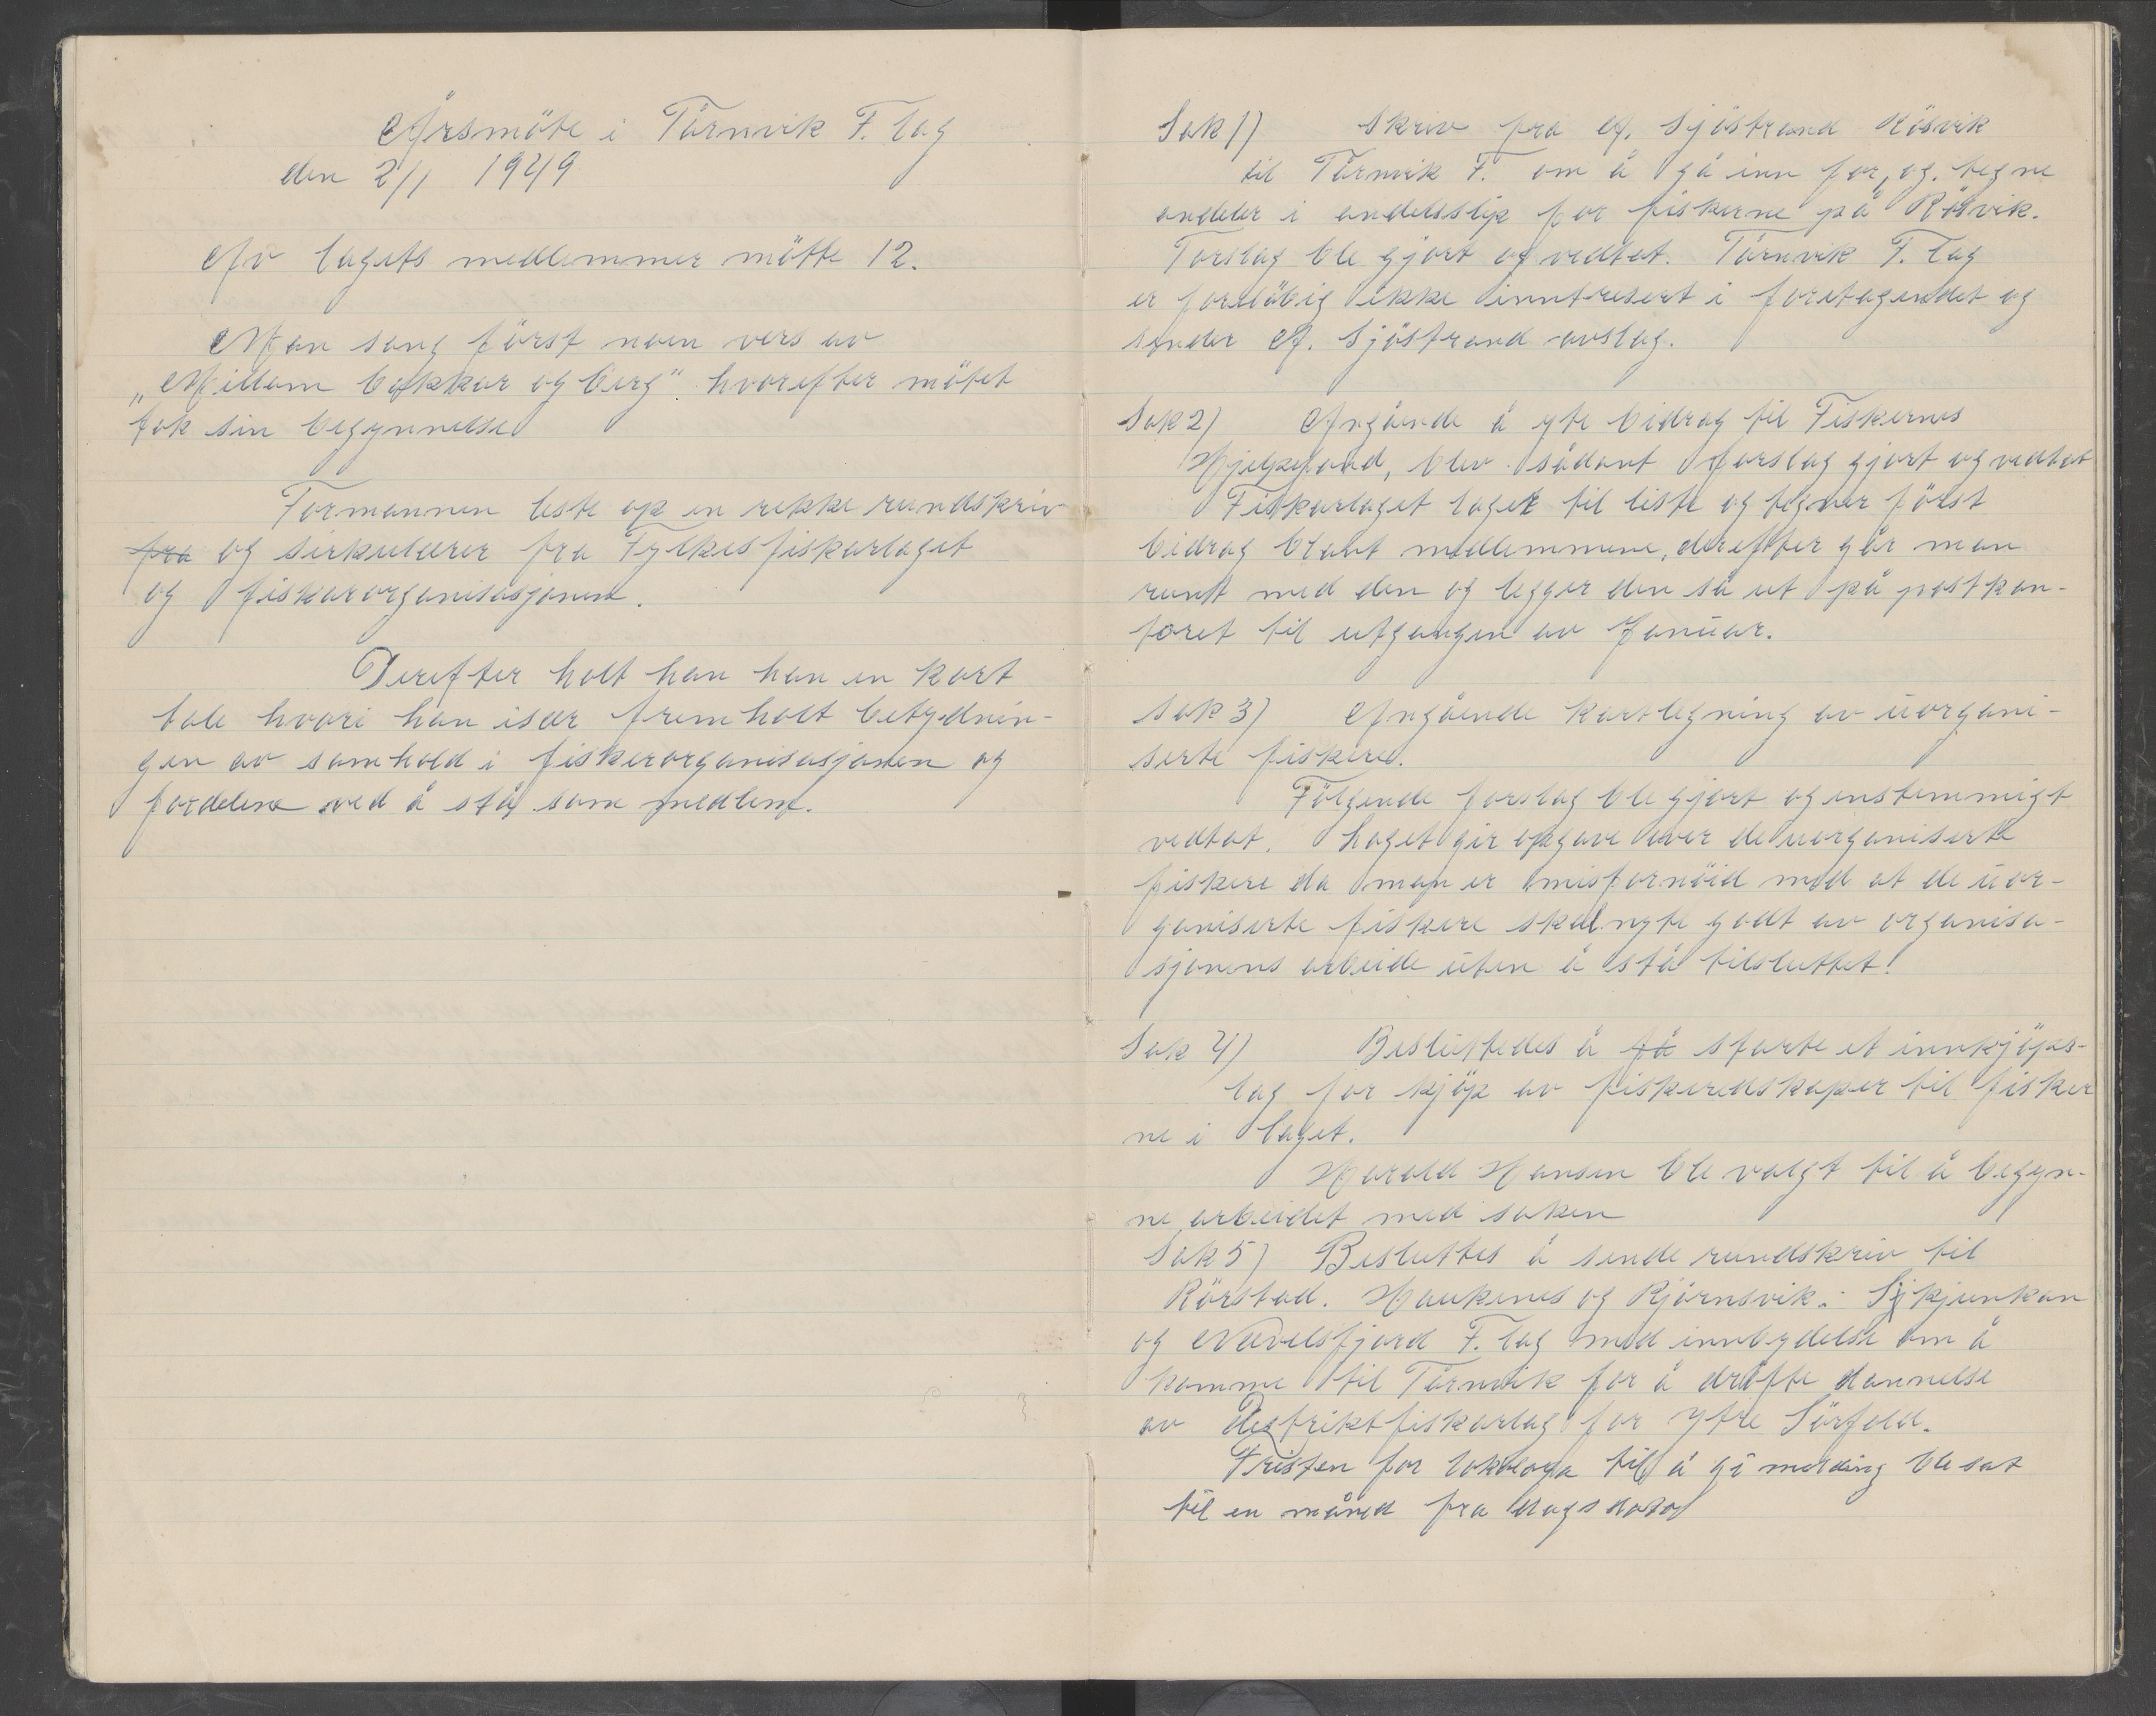 Årsmöte i Tårnvik F. lag
den 2/1 1949
Av lagets medlemmer mötte 12.
Man sang först noen vers av
„Millom bakkar og berg" hvorefter mötet
tok sin begynnelse
Formannen leste op en rekke rundskriv
fra og sirkulærer fra Fylkesfiskarlaget
og fiskarorganisasjonen.
Derefter holt han han en kort
tale hvori han især fremholt betydnin-
gen av samhold i fiskerorganisasjonen og
fordelene ved å stå som medlem.
Sak 1) Skriv fra A. Sjöstrand Rösvik
til Tårnvik F. om å gå inn for, og tegne
andeler i andelsslip for fiskerne på Rösvik.
Forslag ble gjort og vedtat. Tårnvik F. lag
er forelöbig ikke inntresert i foretagendet og
sender A. Sjöstrand avslag.
Sak 2) Angående å yte bidrag til Fiskernes
Hjelpefond, blev sådant forslag gjort og vedtat
Fiskarlaget lager til liste og tegner först
bidrag blant medlemmene, derefter går man
runt med den og legger den så ut på postkon-
toret til utgangen av Januar.
Sak 3) Angående kartlegning av uorgani-
serte fiskere.
Fölgende forslag ble gjort og enstemmigt
vedtat. Laget gir opgave over de uorganiserte
fiskere da man er misfornöid med at de uor-
ganiserte fiskere skal nyte godt av organisa-
sjonens arbeide uten å stå tilsluttet!
Sak 4) Besluttedes å få starte et innkjöps-
lag for kjöp av fiskeredskaper til fisker
ne i laget.
Harald Hansen ble valgt til å begyn-
ne arbeidet med saken
Sak 5) Besluttes å sende rundskriv til
Rörstad. Haukenes og Kjörnsvik.
og Nevelsfjord F. lag med innbydelse om å
komme til Tårnvik for å dröfte dannelse
av Destriktfiskarlag for ytre Sörfold.
Fristen for lokallaga til å gi melding ble sat
til en måned fra dags dato